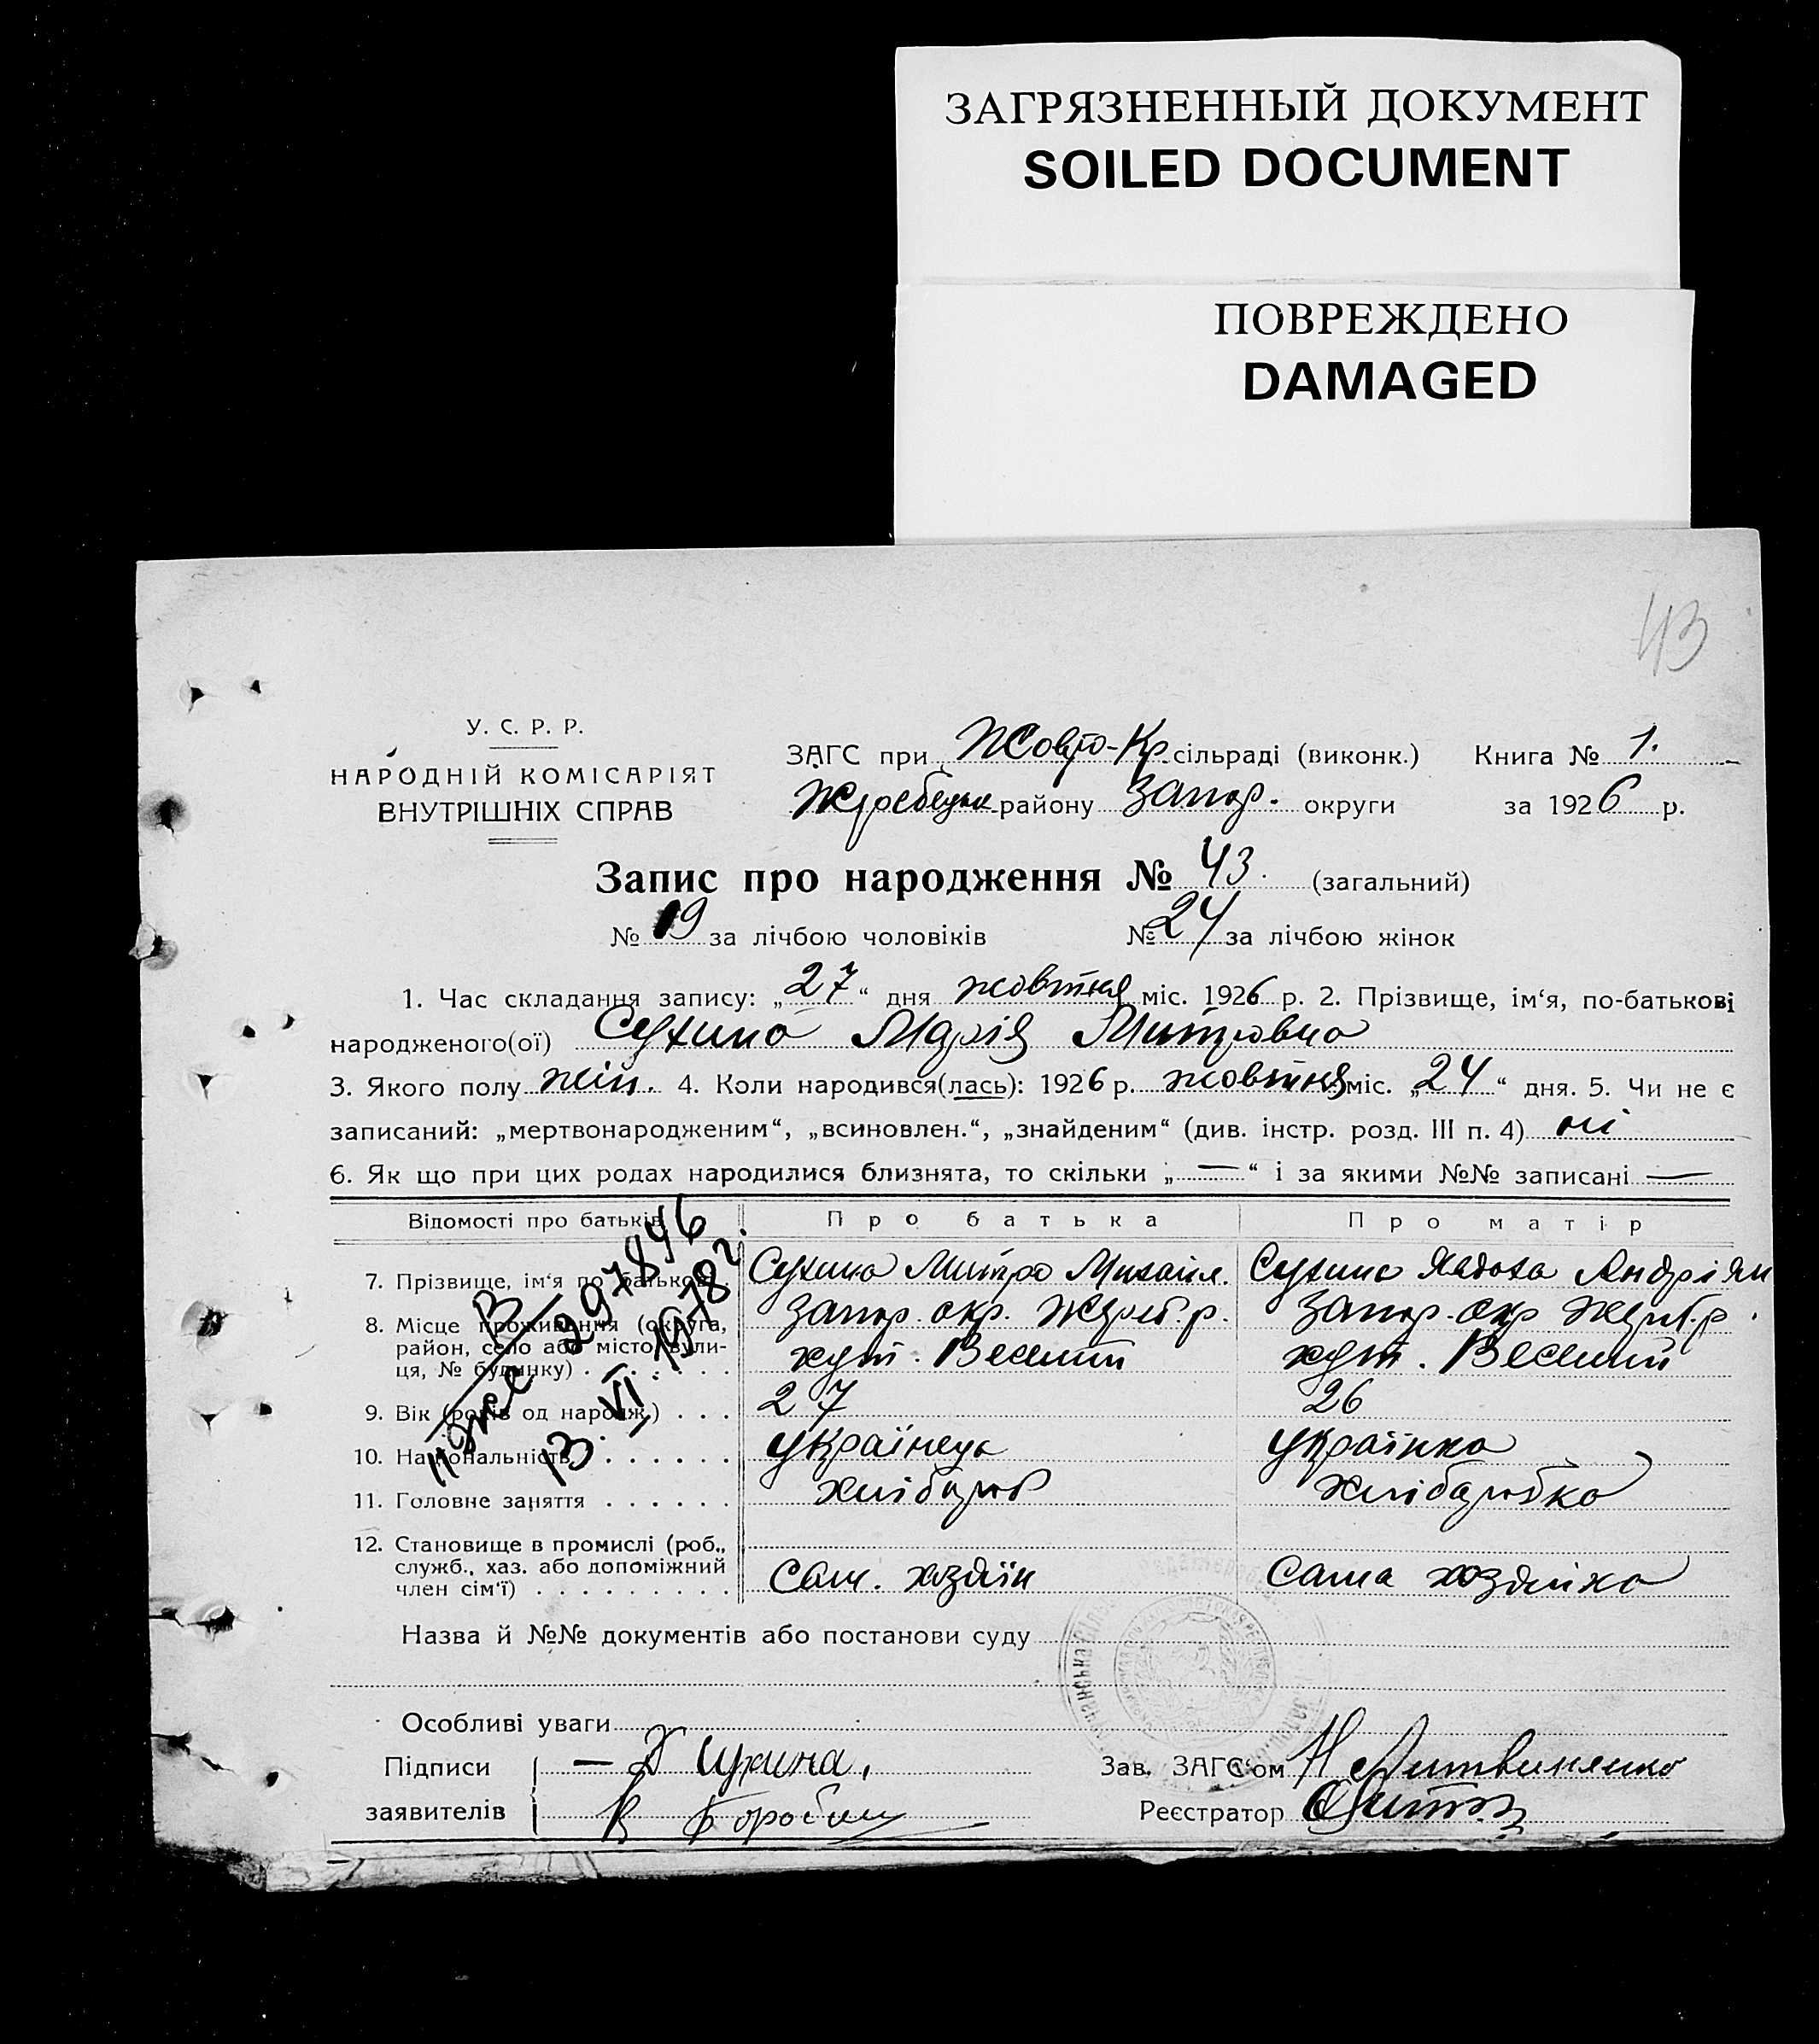 ЗАГРЯЗНЕННЫЙ ДОКУМЕНТ
SOILED DOCUMENT
ПОВРЕЖДЕНО
DAMAGED
43
У. С. Р. Р.
НАРОДНІЙ КОМІСАРІЯТ
ВНУТРІШНІХ СПРАВ
ЗАГС при Жовто-Кр. сільраді (виконк.) Книга № 1.
Жеребецьк району Запор. округи за 1926 р.
Запис про народження № 43. (загальний)
№ 19 за лічбою чоловіків № 24 за лічбою жінок
1. Час складання запису: „27“ дня жовтня міс. 1926 р. 2. Прізвище, ім‘я, по-батькові
народженого(ої) Сухина Марія Митровна
3. Якого полу жін. 4. Коли народився(лась): 1926 р. жовтня міс. „24“ дня. 5. Чи не є
записаний: „мертвонародженим“, „всиновлен.“, „знайденим“ (див. інстр. розд. III п. 4) ні
6. Як що при цих родах народилися близнята, то скільки „—“ і за якими №№ записані —
Відомості про батьків Про батька Про матір
7. Прізвище, ім‘я по батьков. Сухина Митро Михайл. Сухина Явдоха Андріян
8. Місце проживання (округа, Запор. окр. Жереб. р. Запор. окр Жереб. р.
район, село або місто, вули- хут. Веселий хут. Веселий
ця, № будинку)
9. Вік (років од народж.) 27 26
10. Національність українець українка
11. Головне заняття хлібороб хліборобка
12. Становище в промислі (роб.,
служб., хаз. або допоміжний
член сім‘ї) Сам. хазяїн Сама хазяйка
297846
13. VI. 1978 г.
Назва й №№ документів або постанови суду
Особливі уваги
Підписи — Сухина,
заявителів
Зав. ЗАГС‘ом Н Литвиненко
Реєстратор